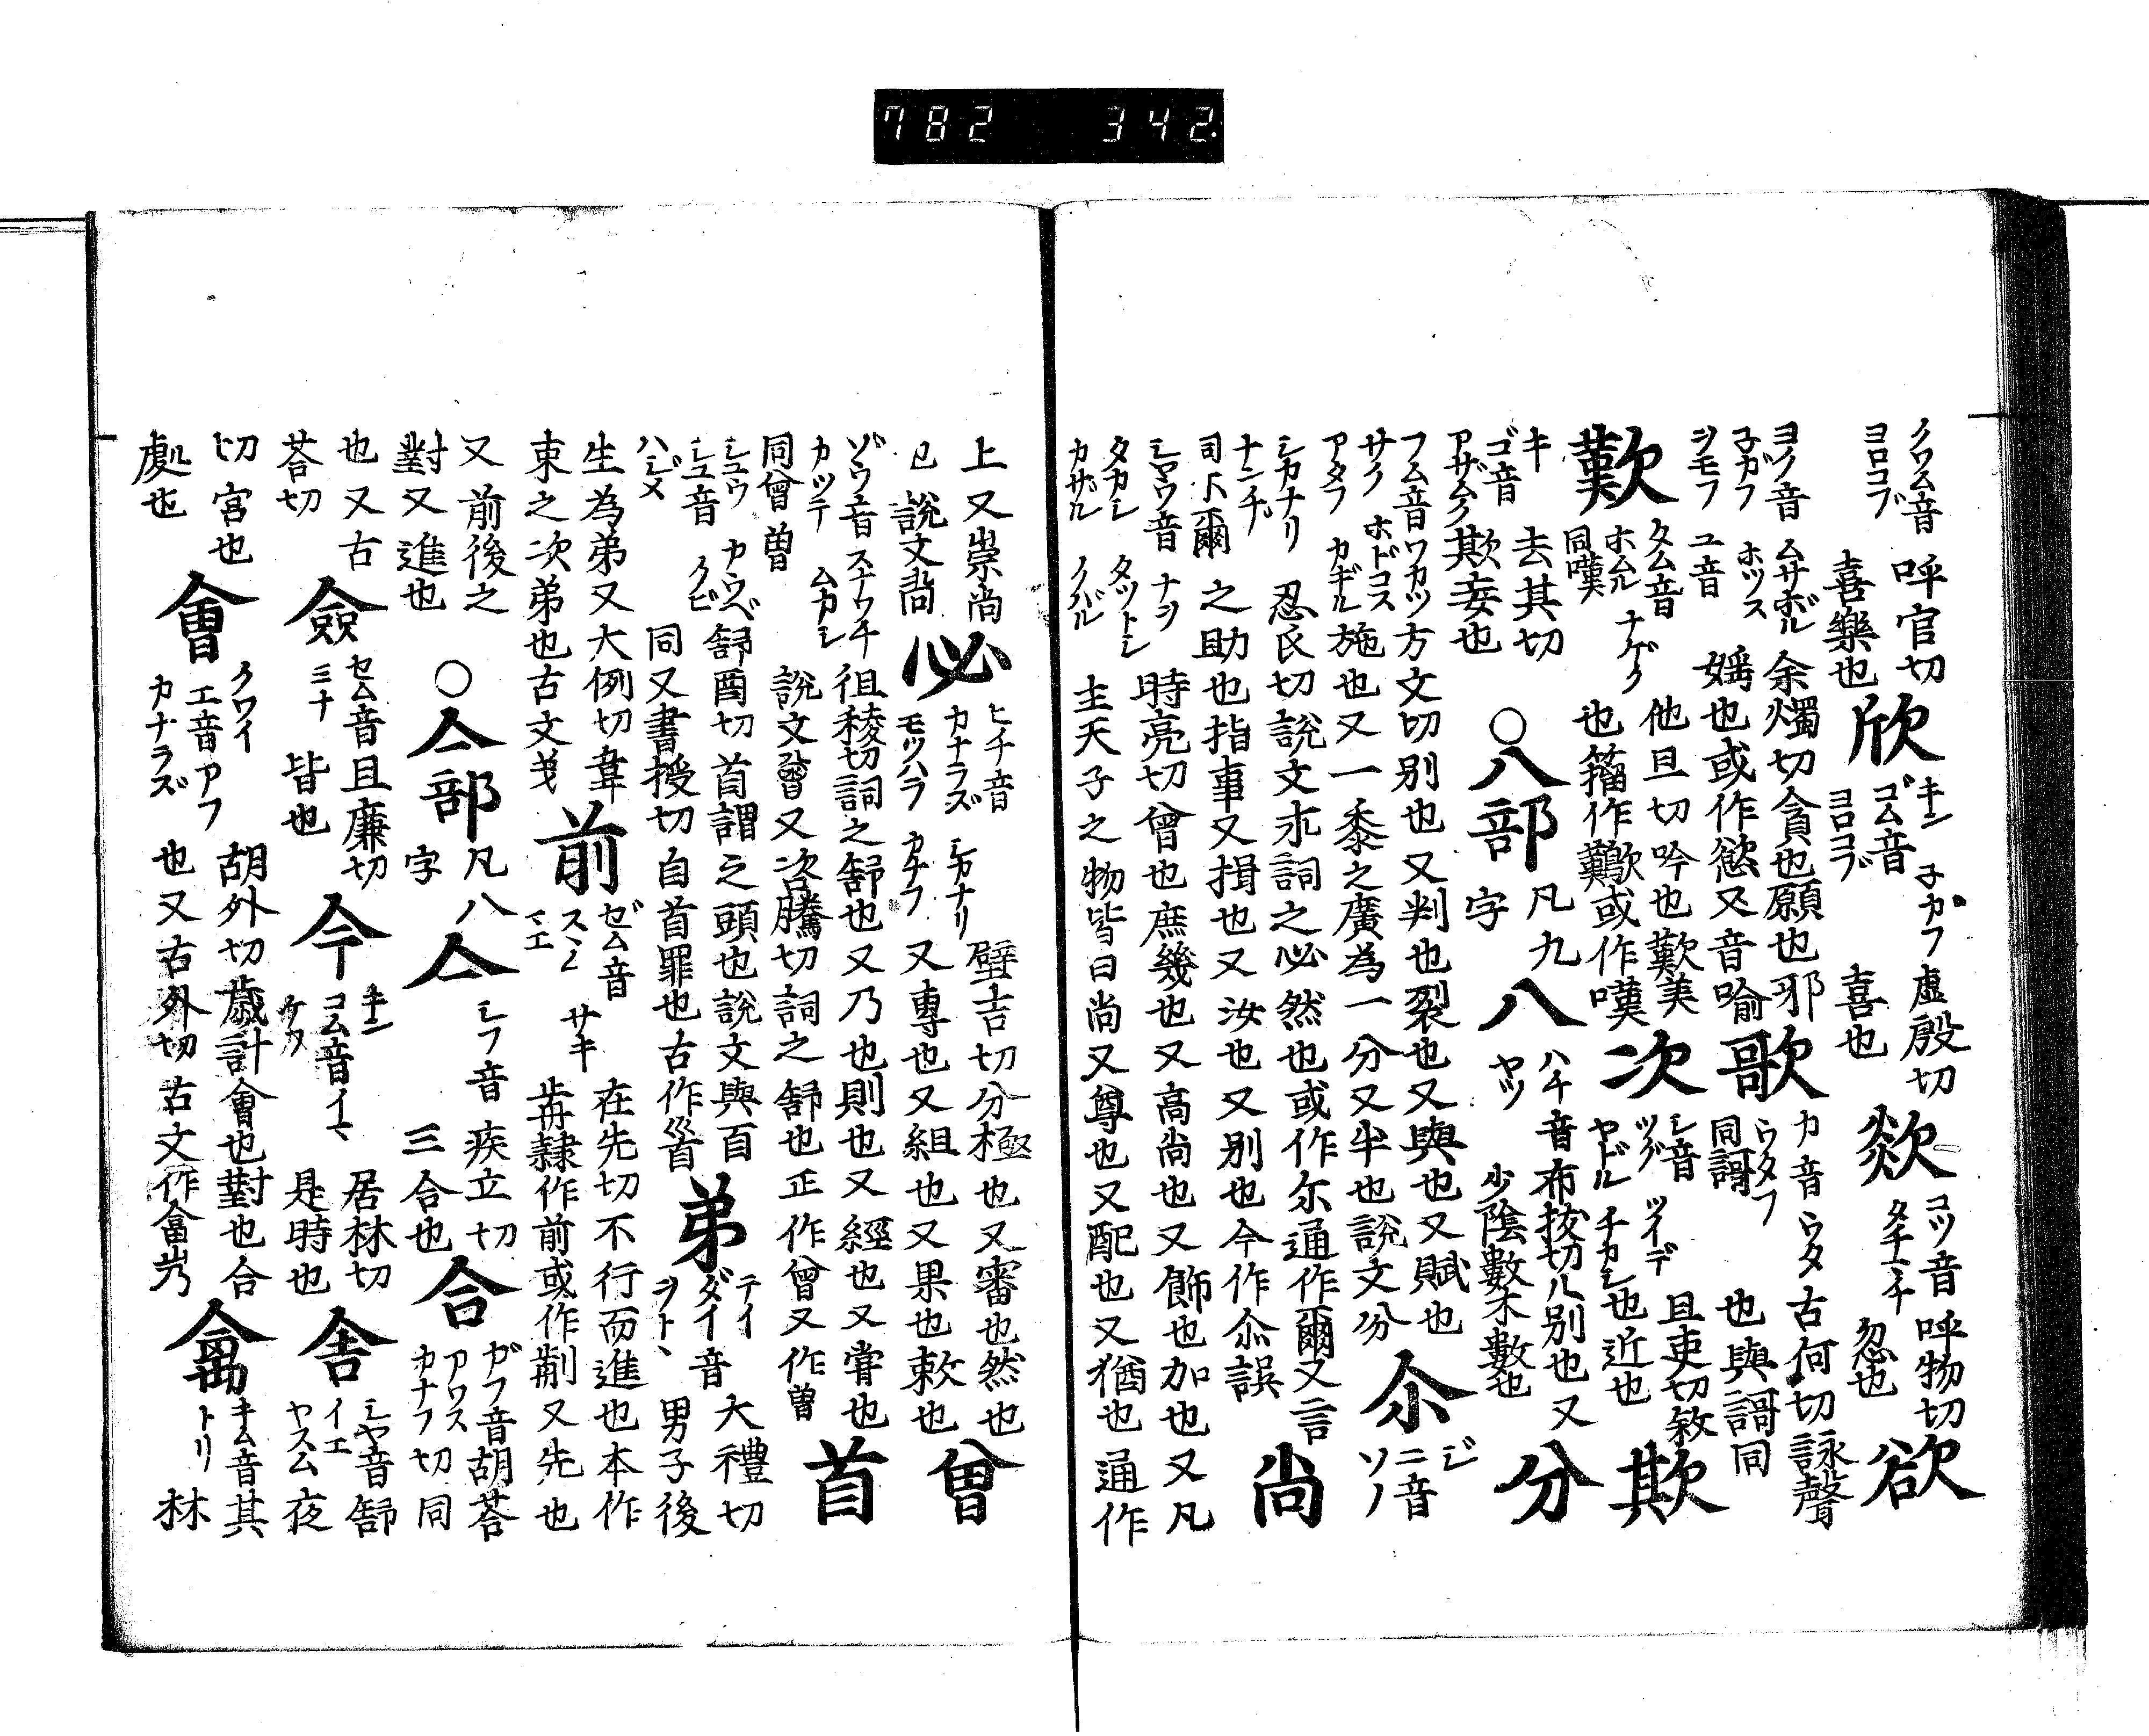 782 342
クワム音 呼官切
ヨロコブ 喜樂也
欣 キン ゴム音 ヨロコブ ネガフ 虚殷切 喜也
欻 コツ音 タチマチ 呼物切 忽也
欲
ヨク音 ムサボル 余燭切貪也願也邪
ネガフ ホツス 婬也或作慾又音喻
ヲモフ ユ音
歌 カ音 ウタ ウタフ 同謌 古何切詠聲也與謌同
歎 タム音 ホムル ナゲク 同嘆 他旦切吟也歎美也籀作鷄或作嘆
次 シ音 ツグ ツイデ ヤドル チカシ 且吏切敘也近也
欺
キ ゴ音 去其切
アザムク 欺妄也
○八部 凡九字
八 ハチ音 ヤツ 布拔切八別也又少陰數木數也
分
フム音 ワカツ 方文切別也又判也裂也又與也又賦也
サク ホドコス
アタフ カギル 施也又一黍之廣為一分又半也說文分
尒 ジ ニ音 ソノ
シカナリ 忍氏切說文尒詞之必然也或作尔通作爾又言
ナンヂ 同尓爾 之助也指事又揖也又汝也又別也今作尒誤
尚
シヤウ音 ナヲ 時亮切曾也庶幾也又高尚也又飾也加也又凡
タカシ タツトシ
カザル クハル 主天子之物皆曰尚又尊也又配也又猶也通作
上又崇尚
已說文尚
必 ヒチ音 カナラズ シカナリ モツハラ カナフ 璧吉切分極也又審也然也又專也又組也又果也敕也
曾
ゾウ音 スナワチ 徂稜切詞之舒也又乃也則也又經也又甞也
カツテ ムカシ
同曽 說文曾又咨騰切詞之舒也正作曾又作曽
首
シュウ シユ音 カウベ クビ 舒酉切首謂之頭也說文與百
ハジメ 同又書授切自首罪也古作𩠐
弟 テイ ダイ音 ヲトヽ 大禮切男子後
生為弟又大例切韋
束之次弟也古文
前 ゼム音 サキ スヽム 在先切不行而進也本作歬隸作前或作翦又先也
又前後之
對又進也
○亼部 凡八字
亼 シフ音 疾立切三合也
合 ガフ音 アワス カナフ 胡荅切同
也又古
荅切
僉 セム音 ミナ 且廉切皆也
今 キン コム音 イマ 居林切是時也
舍 シヤ音 イエ ヤスム 舒夜
切宮也
處也
會 クワイ エ音 アフ カナラズ 胡外切歲計會也對也合也又古外切古文作㣛
禽 キム音 トリ 其林